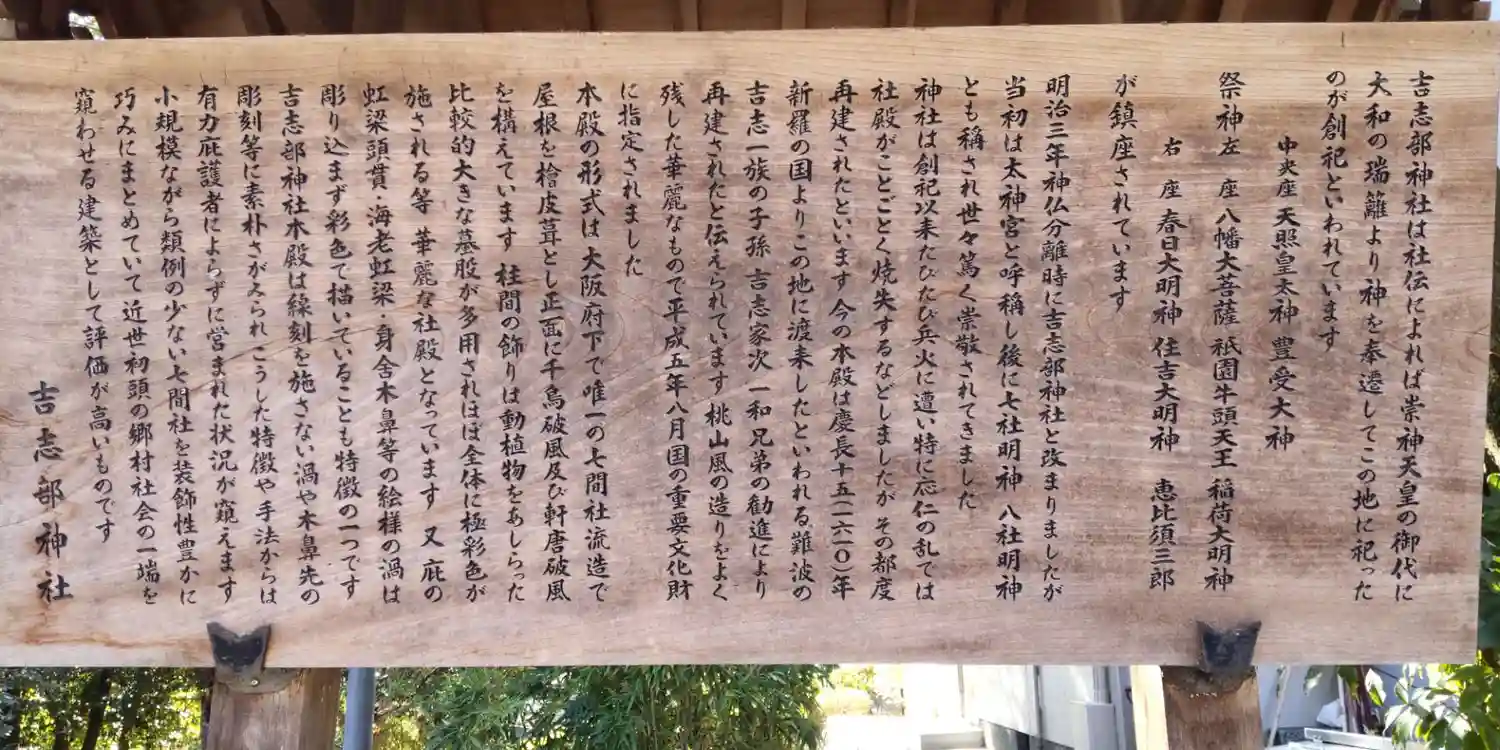 吉志部神社は社伝によれば崇神天皇の御代に
大和の瑞籬より神を奉遷してこの地に祀った
のが創祀といわれています
中央座 天照皇太神 豊受大神
祭神左 座 八幡大菩薩 祇園牛頭天王 稲荷大明神
右 座 春日大明神 住吉大明神 恵比須三郎
が鎮座されています
明治三年神仏分離時に吉志部神社と改まりましたが
当初は太神宮と呼称し後に七社明神 八社明神
とも称され世々篤く崇敬されてきました
神社は創祀以来たびたび兵火に遭い特に応仁の乱では
社殿がことごとく焼失するなどしましたが その都度
再建されたといいます 今の本殿は慶長十五(一六一〇)年
新羅の国よりこの地に渡来したといわれる難波の
吉志一族の子孫 吉志家次 一和兄弟の勧進により
再建されたと伝えられています 桃山風の造りをよく
残した華麗なもので平成五年八月国の重要文化財
に指定されました
本殿の形式は 大阪府下で唯一の七間社流造で
屋根を檜皮葺とし正面に千鳥破風及び軒唐破風
を構えています 柱間の飾りは動植物をあしらった
比較的大きな墓股が多用されほぼ全体に極彩色が
施される等 華麗な社殿となっています 又 庇の
虹梁頭貫・海老虹梁・身舎木鼻等の絵様の渦は
彫り込まず彩色で描いていることも特徴の一つです
吉志部神社本殿は線刻を施さない渦や木鼻先の
彫刻等に素朴さがみられ こうした特徴や手法からは
有力庇護者によらずに営まれた状況が窺えます
小規模ながら類例の少ない七間社を装飾性豊かに
巧みにまとめていて 近世初頭の郷村社会の一端を
窺わせる建築として評価が高いものです
吉志部神社